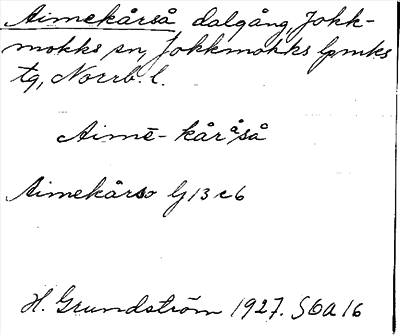 Aimekårså dalgång, Jokk-
mokks sn, Jokkmokks lpmks
tg, Norrb. l.
Aimē- kåråså
Aimekårso lj 13 c 6
H. Grundström 1927. S 6a 16